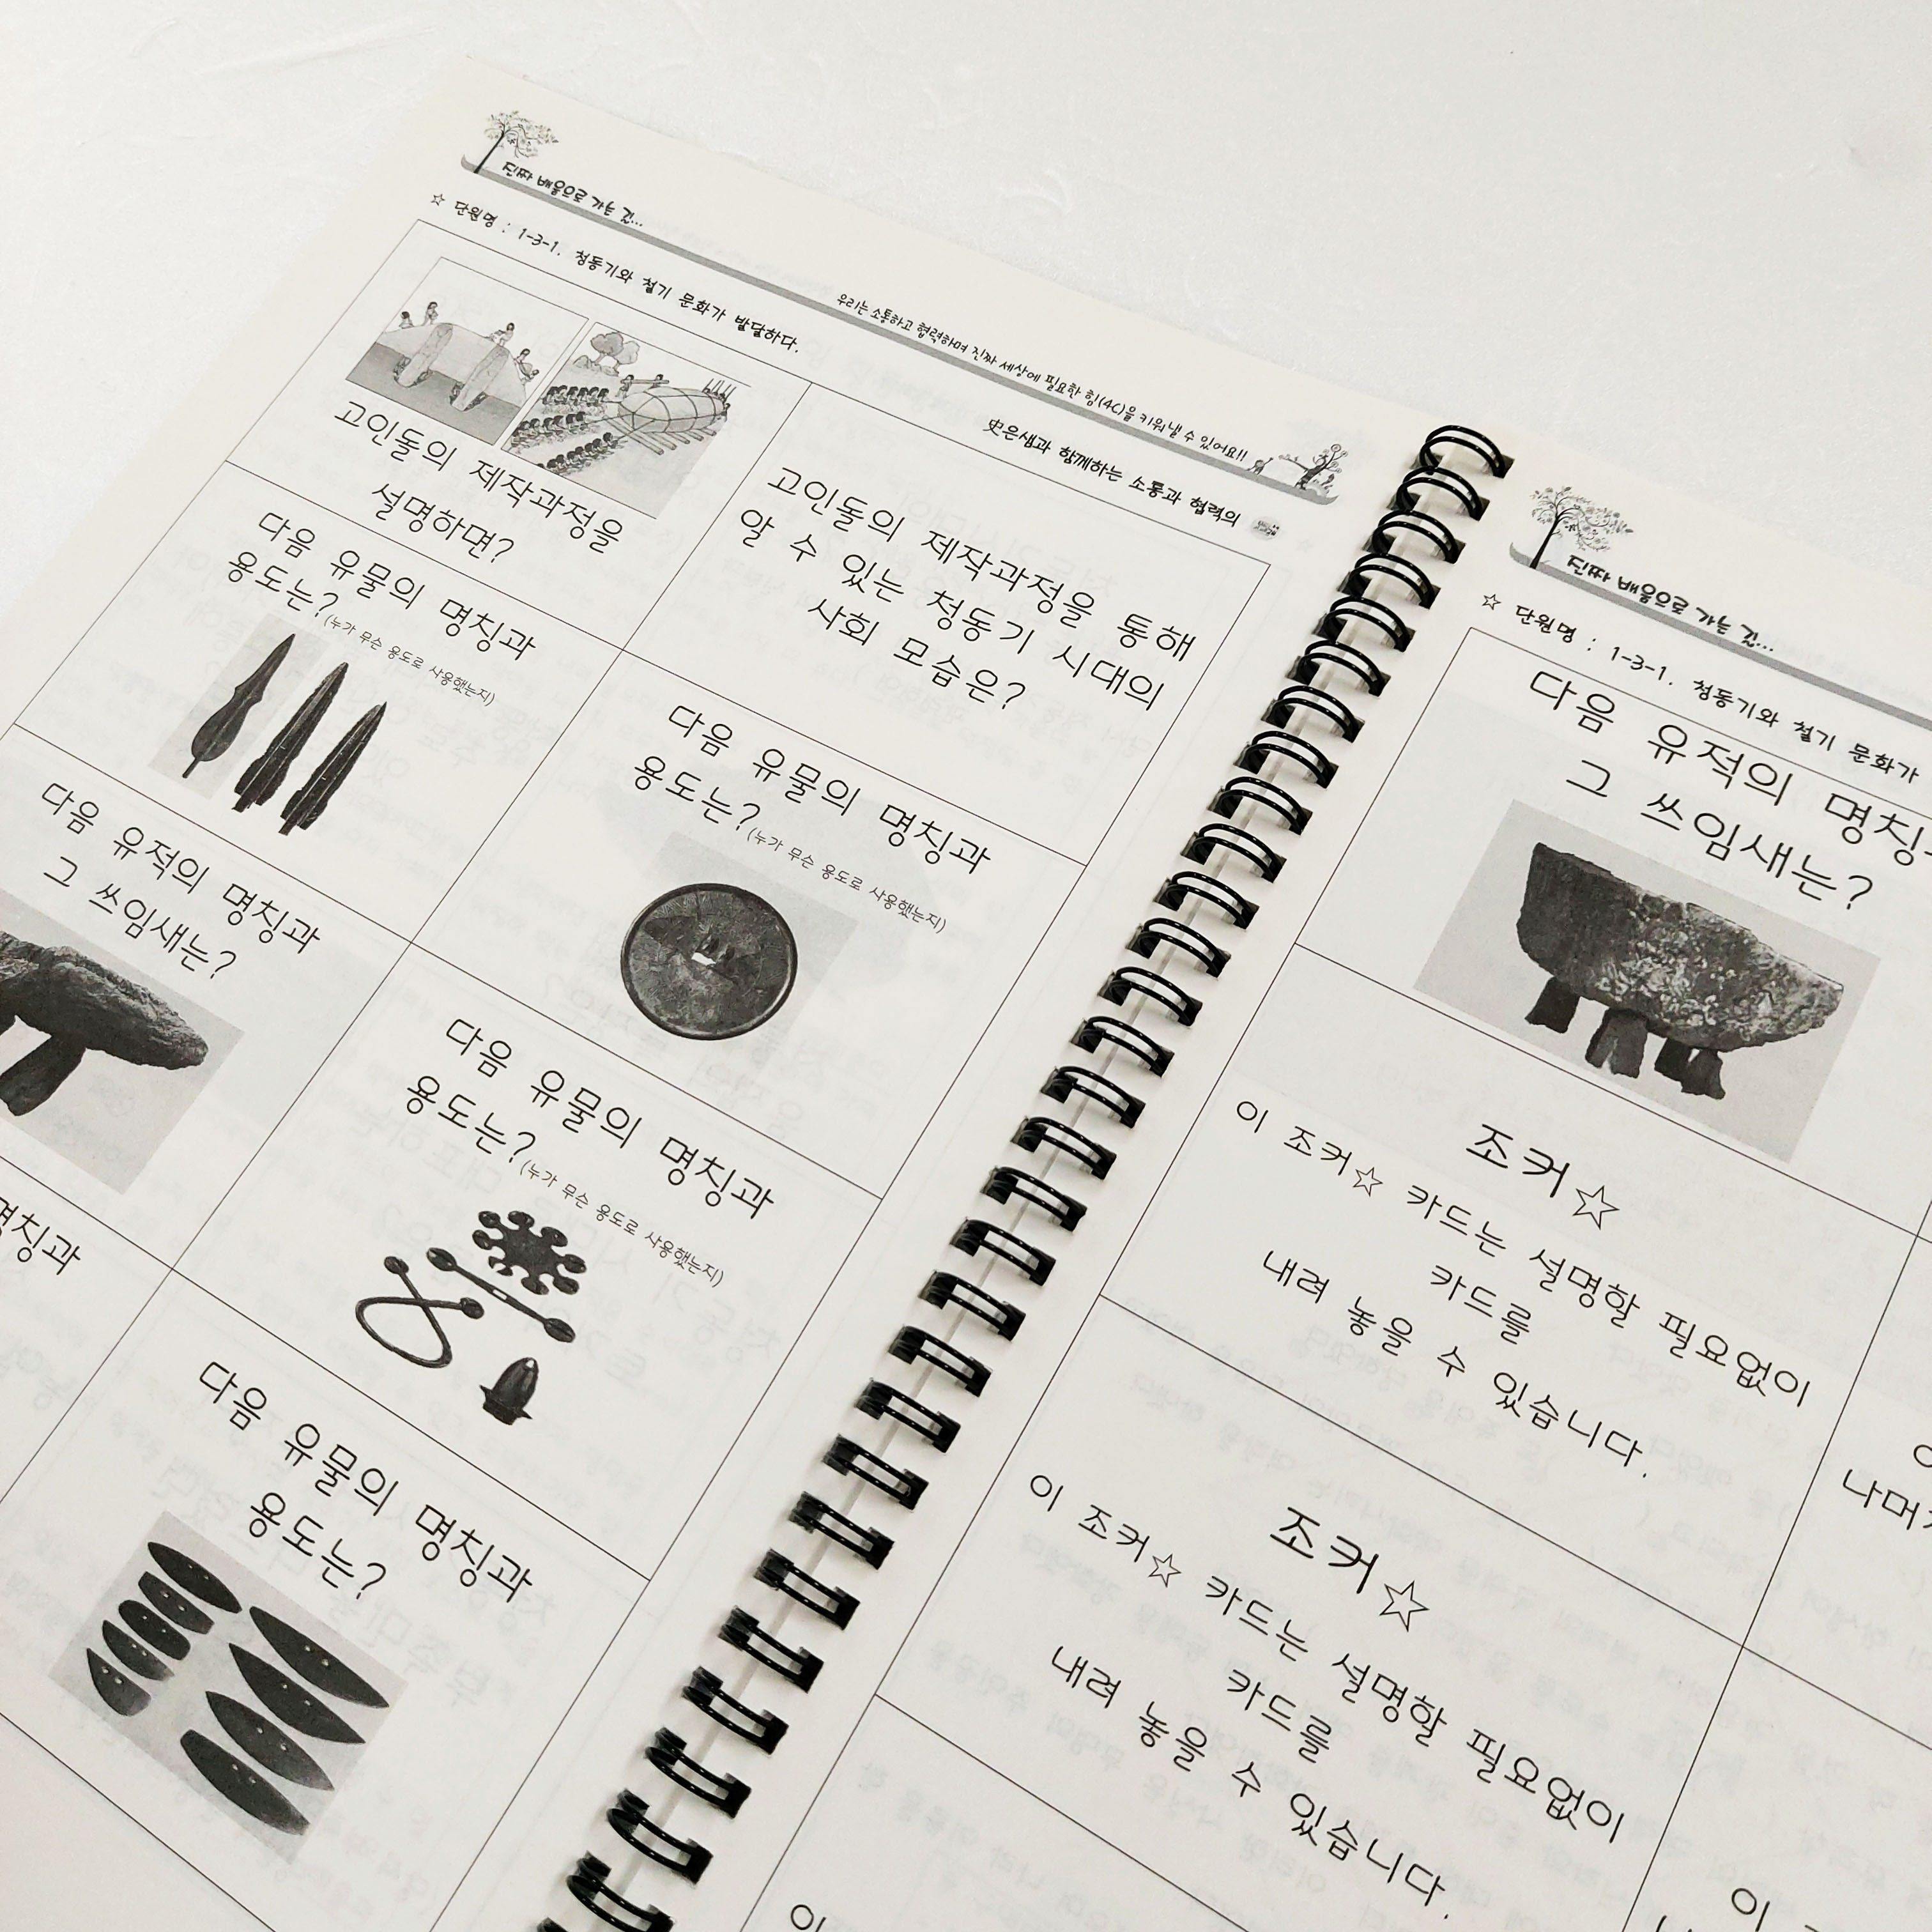 진짜 배움으로 가는 길...
우리는 소통하고 협력하며 진짜 세상에 필요한 힘(4C)을 키워낼 수 있어요!!
☆ 단원명 : 1-3-1. 청동기와 철기 문화가 발달하다.
史은샘과 함께하는 소통과 협력의
고인돌의 제작과정을
설명하면?
고인돌의 제작과정을 통해
알 수 있는 청동기 시대의
사회 모습은?
다음 유물의 명칭과
용도는?(누가 무슨 용도로 사용했는지)
다음 유물의 명칭과
용도는?(누가 무슨 용도로 사용했는지)
다음 유적의 명칭과
그 쓰임새는?
다음 유물의 명칭과
용도는?(누가 무슨 용도로 사용했는지)
명칭과
다음 유물의 명칭과
용도는?
진짜 배움으로 가는 길...
☆ 단원명 : 1-3-1. 청동기와 철기 문화가
다음 유적의 명칭
그 쓰임새는?
조커☆
이 조커☆ 카드는 설명할 필요없이
카드를
내려 놓을 수 있습니다.
조커☆
이 조커☆ 카드는 설명할 필요없이
카드를
내려 놓을 수 있습니다.
이
나머
이